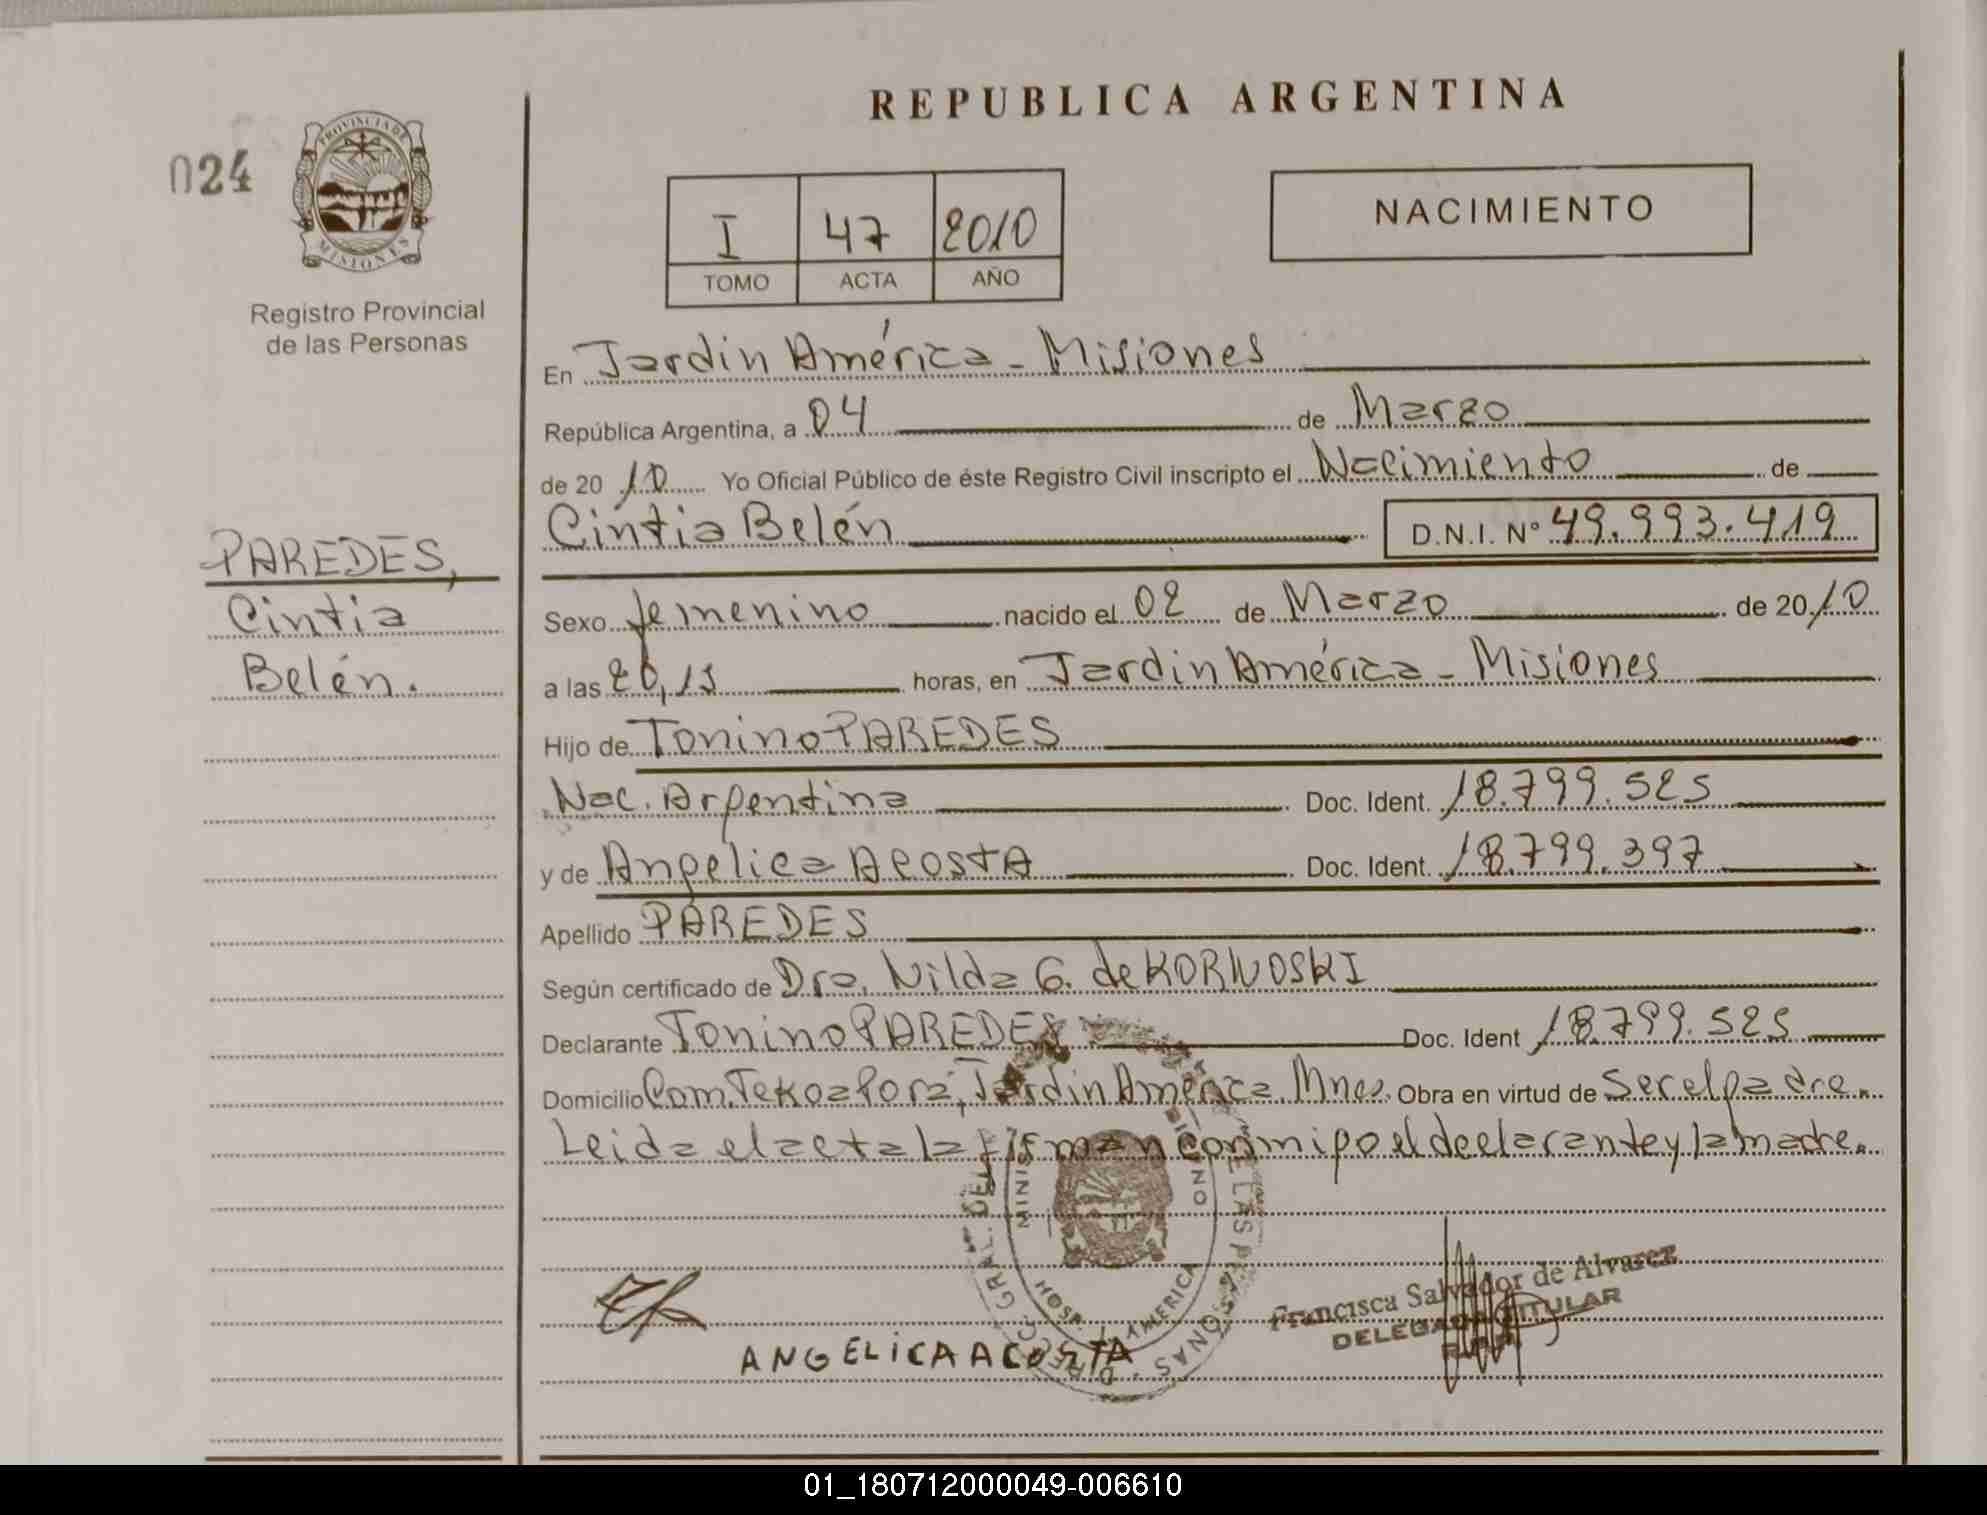 REPUBLICA ARGENTINA
024
PROVINCIA DE
MISIONES
Registro Provincial
de las Personas
I 47 2010
TOMO ACTA AÑO
NACIMIENTO
En Jardin América - Misiones
República Argentina, a 04 de Marzo
de 2010 Yo Oficial Público de éste Registro Civil inscripto el Nacimiento de
Cintia Belén D.N.I. Nº 49.993.419
PAREDES,
Cintia
Belén.
Sexo femenino nacido el 02 de Marzo de 2010
a las 20,15 horas, en Jardin América - Misiones
Hijo de Tonino PAREDES
Nac. Argentina Doc. Ident. 18.799.525
y de Angelica ACOSTA Doc. Ident. 18.799.397
Apellido PAREDES
Según certificado de Dra. Nilda G. de KORNOSKI
Declarante Tonino PAREDES Doc. Ident 18.799.525
Domicilio Com. Tekoa Porá, Jardin América. Mnes. Obra en virtud de Ser el padre.
Leida el acta la firman conmigo el declarante y la madre.
ANGELICA ACOSTA
Francisca Salvador de Alvarez
DELEGADA TITULAR
01_180712000049-006610